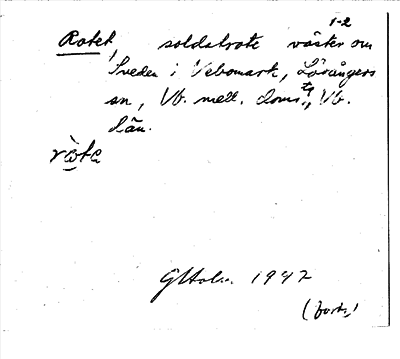 1-2
Rotet, soldatrote väster om
Sveden i Vebomark, Lövångers
sn, Vb. mell. doms., Vb.
län.
ròte
GHolm. 1947
(forts.)